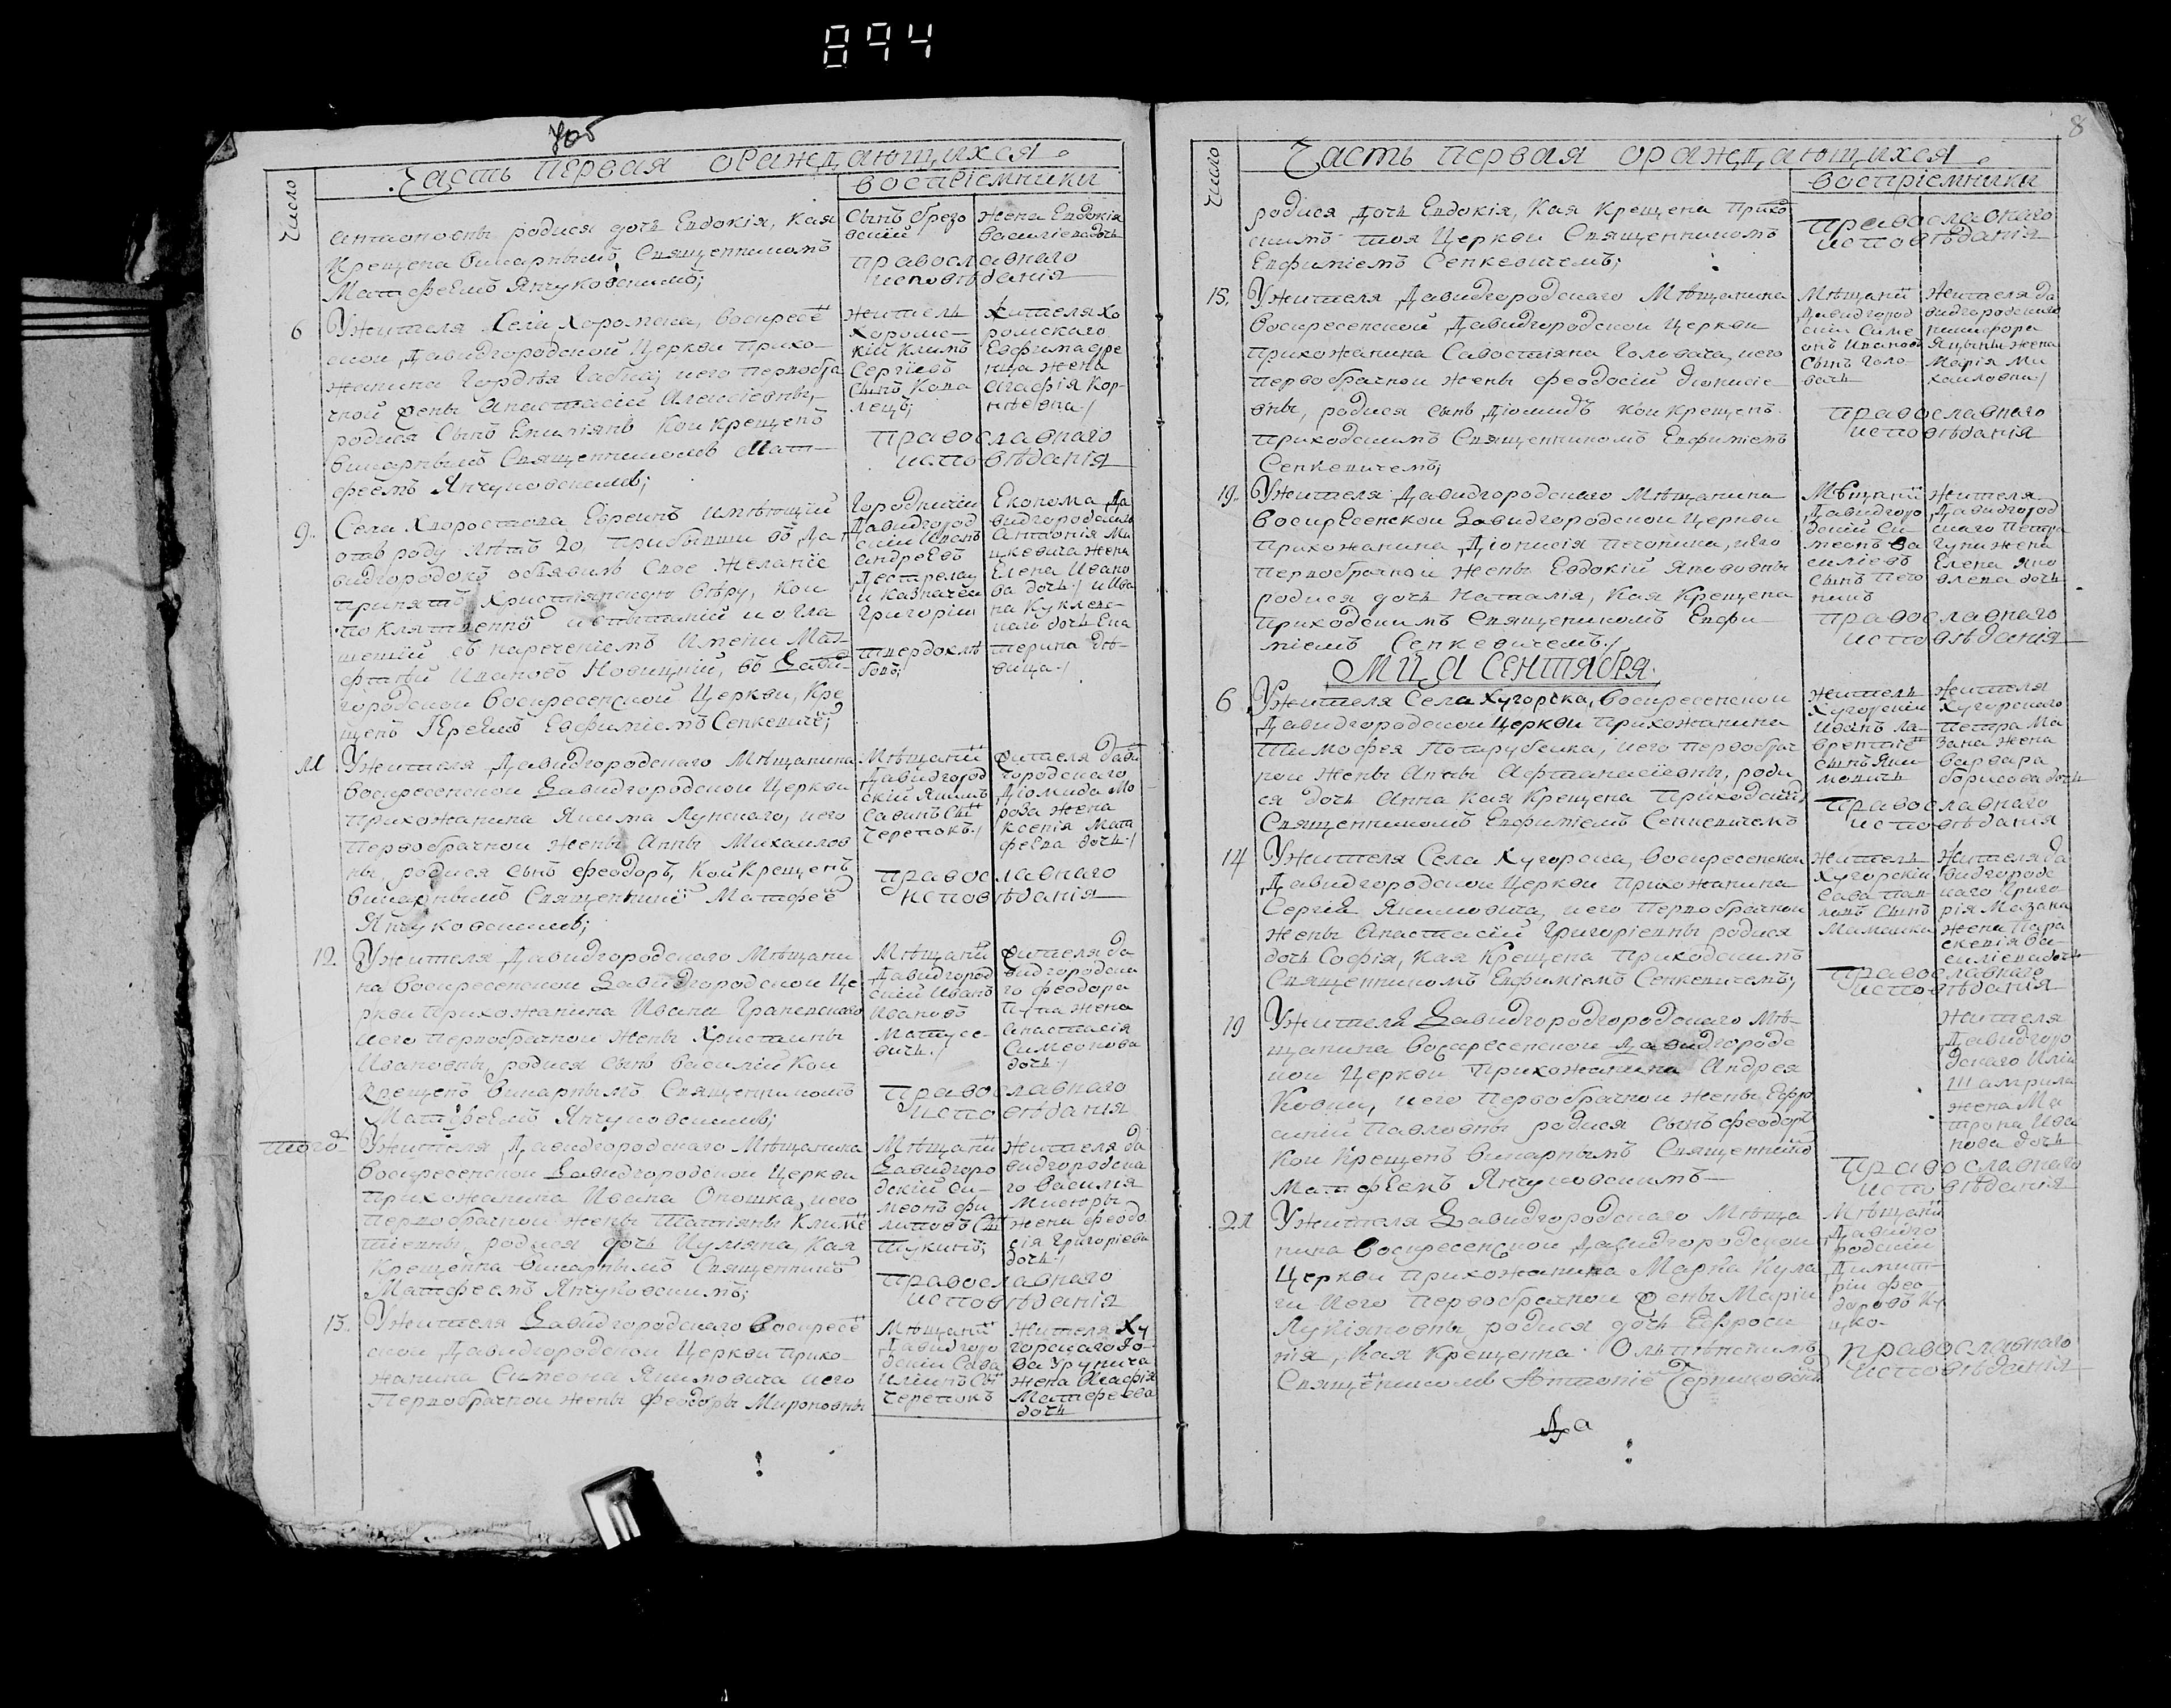 894
Часть первая о раждающихся.
Число
воспріемники
Антоновны родися дочь Евдокія, кая
Крещена викарнымъ Священникомъ
Матфеемъ Янчуковскимъ;
Сынъ Брезо
вскій
жена Евдокія
Василіева дочь
православнаго
исповѣданія
6
Ужителя Села Хоромска, воскресе
ской Давидгородской Церкви прихо-
жанина Гордѣя Габца, иего первобра
чной жены Анастасіи Алексіевны,
родися Сынъ Емиліянъ кой крещенъ
викарнымъ Священникомъ Мат-
феемъ Янчуковскимъ;
житель
Хоромс-
кій Климъ
Сергіевъ
сынъ
жителя Хо
ромского
Евфима
жена
Агафія Кор-
нѣевна
православнаго
исповѣданія
9.
Села Хворостова Евреинъ имѣющій
отъ роду лѣтъ 20, прибывши въ Да
видгородокъ объявилъ Свое желаніе
принять Христіянскую вѣру, кой
по
съ нареченіемъ имени Мат
фтей Ивановъ Новицкій, въ Давид
городской воскресенской Церкви, кре
щенъ Іереемъ Евфиміемъ Сенкевиче;
Городничій
Давидгород
скій Иванъ
Андреевъ
и казначей
Григорій
Твердохлѣ
бовъ;
Економа Да
видгородскаго
Антонія Ми
цкевича жена
Елена Ивано
ва дочь / и Ива
на
наго дочь Ека
терина дѣ-
вица /
11
Ужителя Давидгородскаго Мѣщанина
воскресенской Давидгородской Церкви
прихожанина Якима Лунскаго, иего
первобрачной жены Анны Михаилов
ны, родися сынъ Феодоръ, кой крещенъ
викарнымъ Священнике Матфее
Янчуковскимъ;
Мѣщани
Давидгород
скій Якимъ
Савинъ Сы
Черепокъ /
жителя Дави
городского
Діомида Мо
роза жена
Ксенія Мат
феева дочь /
православнаго
исповѣданія
12.
Ужителя Давидгородскаго Мѣщани
на воскресенской Давидгородской Це
ркви прихожанина Ивана
иего первобрачной жены Христины
Ивановны, родися сынъ василій кой
крещенъ викарнымъ Священникомъ
Матфеемъ Янчуковскимъ;
Мѣщани
Давидгород
скій Иванъ
Ивановъ
Матусе-
вичъ /
жителя Да
видгородска
го Феодора
жена
Анастасія
Симеонова
дочь /
православнаго
исповѣданія
тогоѣ
Ужителя Давидгородскаго Мѣщанина
воскресенской Давидгородской Церкви
прихожанина Ивана Опошка иего
первобрачной жены Татіяны Климе
тіевны, родися дочь Иуліяна, кая
Крещенна викарнымъ Священникъ
Матфеемъ Янчуковскимъ;
Мѣщани
Давидгоро
дскій Си-
меонъ Фи
липовъ Сы
жителя Да
видгородска
го Василія
жена Феодо
сія Григоріева
дочь /
православнаго
исповѣданія
13.
Ужителя Давидгородскаго воскресе
ской Давидгородской Церкви прихо-
жанина Симеона Якимовича иего
первобрачной жены Феодоры Мироновны
Мѣщани
Давидгоро
дскій Сава
Илинъ Сы
Черепокъ
жителя Ху
горскаго
жена Агафія
Матфеева
дочь
8
Часть первая о раждающихся.
Число
воспріемники
родися дочь Евдокія, кая крещена прихо
скимъ тоя Церкви Священникомъ
Евфиміемъ Сенкевичемъ;
православнаго
исповѣданія
15.
Ужителя Давидгородскаго Мѣщанина
воскресенской Давидгородской Церкви
прихожанина Савостіяна Головача, иего
первобрачной жены Феодосіи Діонисіе
вны, родися сынъ Діомидъ кой крещенъ
приходскимъ Священникомъ Евфиміемъ
Сенкевичемъ;
Мѣщани
Давидгород
скій Симе
онъ Ивановъ
Сынъ Голо-
вачь
жителя Да
видгородскаго
никифора
жена
Марія Ми
хаиловна /
православнаго
исповѣданія
19.
Ужителя Давидгородскаго Мѣщанина
воскресенской Давидгородской Церкви
прихожанина Діонисія Печоника, иего
первобрачной жены Евдокіи Якововны
родися дочь Наталія, кая крещена
приходскимъ Священикомъ Евфи
міемъ Сенкевичемъ /
Мѣщани
Давидгоро
дскій Си-
меонъ Ва
силіевъ
сынъ Печо
никъ
жителя
Давидгород
скаго Петра
жена
Елена Яко
влева дочь
православнаго
исповѣданія
МЦА СЕНТЯБРЯ.
6
Ужителя Села Хугорска, воскресенской
Давидгородской Церкви прихожанина
Тимофея Потарубейка, иего первобрач
ной жены Анны Афтанасіевны, роди
ся дочь Анна кая крещена приходски
Священникомъ Евфиміемъ Сенкевичемъ
житель
Хугорскій
Иванъ Ла-
врентіе
сынъ Яки
мовичь
жителя
Хугорскаго
петра Ма
зана жена
варвара
борисова дочь
православнаго
исповѣданія
14
Ужителя Села Хугорска, воскресенской
Давидгородской Церкви прихожанина
Сергія Якимовича, иего первобрачной
жены Анастасіи Григоріевны родися
дочь Софія, кая крещена приходскимъ
Священникомъ Евфиміемъ Сенкевичемъ;
житель
Хугорскій
Сава
сынъ
жителя Да
видгородс
каго Григо
рія Мазана
жена Пара
скевія Ва-
силіева дочь
православнаго
исповѣданія
19
Ужителя Давидгородгородскаго Мѣ-
щанина воскресенской Давидгородс
кой Церкви прихожанина Андрея
иего первобрачной жены Ефро
синіи Павловны родися сынъ Феодоръ
кой крещенъ викарнымъ Священнико
Матфеемъ Янчуковскимъ-
жителя
Давидгоро
дскаго Иліи
Шамрила
жена Ма
трона Ива
нова дочь
православнаго
исповѣданія
21
Ужителя Давидгородскаго Мѣща
нина воскресенской Давидгородской
Церкви прихожанина Марка Кула
ги иего первобрачной жены Маріи
Лукіяновны родися дочь Ефроси
нія, кая крещенна Ольпѣнскимъ
Священикомъ Антоніе Терниковски
Мѣщани
Давидго
родскій
Димит-
рій Фео
доровъ Ку
цко-
православнаго
исповѣданія
Да